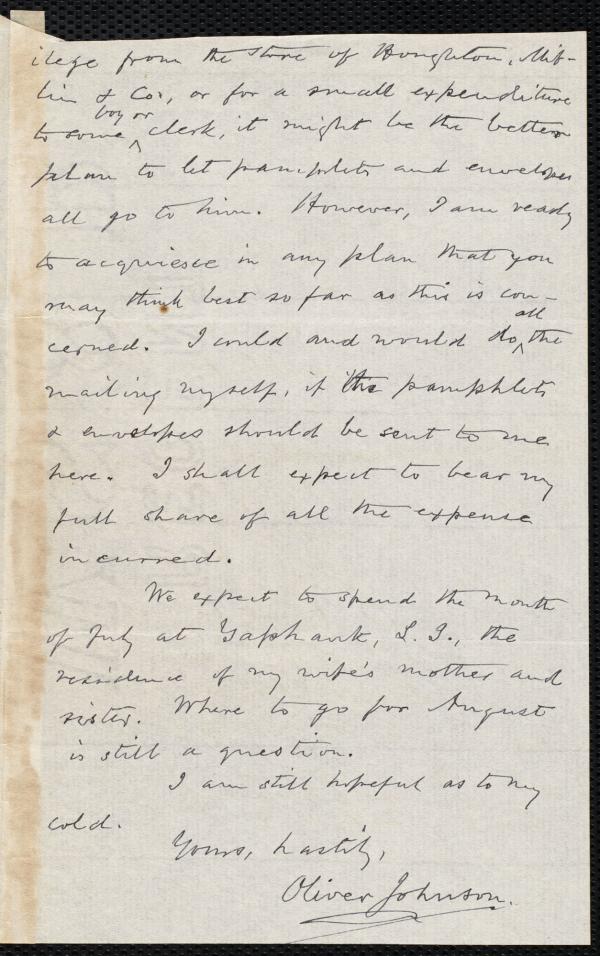 ilege from the store of Houghton, Mif-
lin & Co., or for a small expenditure
boy or
to some ^ clerk, it might be the better
plan to let pamphlets and envelopes
all go to him. However, I am ready
to acquiesce in any plan that you
may think best so far as this is con-
all
cerned. I could and would do ^ the
mailing myself, if the pamphlets
& envelopes should be sent to me
here. I shall expect to bear my
full share of all the expense
incurred.
We expect to spend the month
of July at Yaphank, L. I., the
residence of my wife's mother and
sister. Where to go for August
is still a question.
I am still hopeful as to my
cold.
Yours, hastily,
Oliver Johnson.